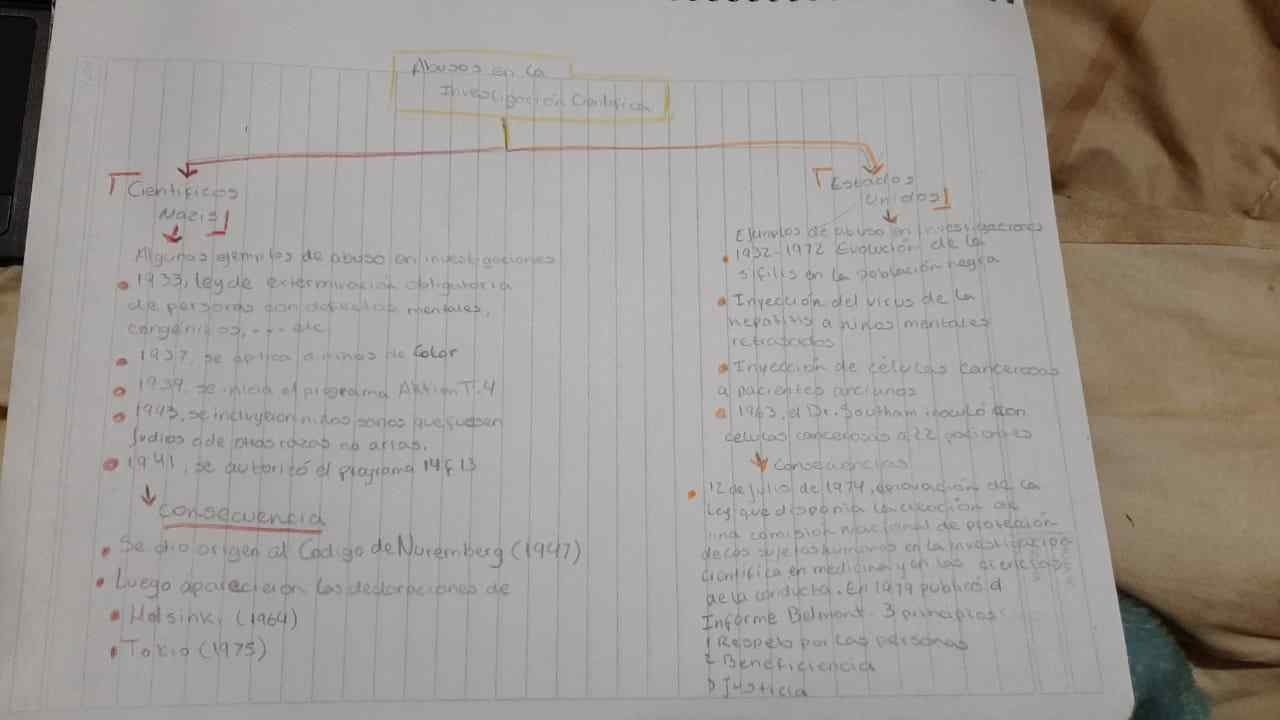 Abusos en la
Investigación Científica
Científicos
Nazis
Algunos ejemplos de abuso en investigaciones
1933, ley de exterminación obligatoria
de personas con defectos mentales,
congénitos, .... etc
1937, se aplica a niños de Color
1939, se inicia el programa Aktion T.4
1943, se incluyeron niños sanos que fuesen
judios o de otras razas no arias.
1941, se autorizó el programa 14 f 13
Consecuencia
Se dio origen al Codigo de Nuremberg (1947)
Luego aparecieron las declaraciones de
Helsinki (1964)
Tokio (1975)
Estados
Unidos
Ejemplos de abuso en investigaciones
1932-1972 Evolución de la
sífilis en la población negra
Inyección del virus de la
hepatitis a niños mentales
retrasados
Inyección de células cancerosas
a pacientes ancianos
1963, el Dr. Southam inoculó con
celulas cancerosas a 22 pacientes
Consecuencias
12 de julio de 1974, aprovación de la
Ley que disponia la creación de
una comision nacional de protección
de los sujetos humanos en la investigacion
cientifica en medicina y en las ciencias
de la conducta. En 1979 publicó el
Informe Belmont - 3 principios:
1 Respeto por las personas
2 Beneficiencia
3 Justicia